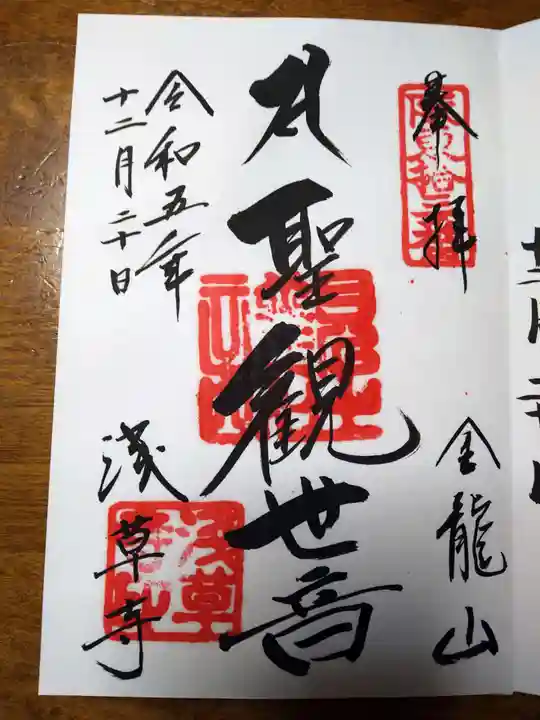 奉拝
坂東拾三番
金龍山
聖観世音
令和五年
十二月二十日
浅草寺